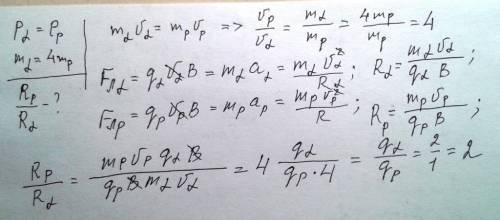 P_α = P_p
m_α = 4m_p
R_p/R_α - ?
m_α υ_α = m_p υ_p => υ_p/υ_α = m_α/m_p = 4m_p/m_p = 4
F_лα = q_α υ_α B = m_α a_α = m_α υ_α²/R_α ; R_α = m_α υ_α/q_α B ;
F_лp = q_p υ_p B = m_p a_p = m_p υ_p²/R ; R_p = m_p υ_p/q_p B ;
R_p/R_α = m_p υ_p q_α B/q_p B m_α υ_α = 4 q_α/q_p · 4 = q_α/q_p = 2/1 = 2